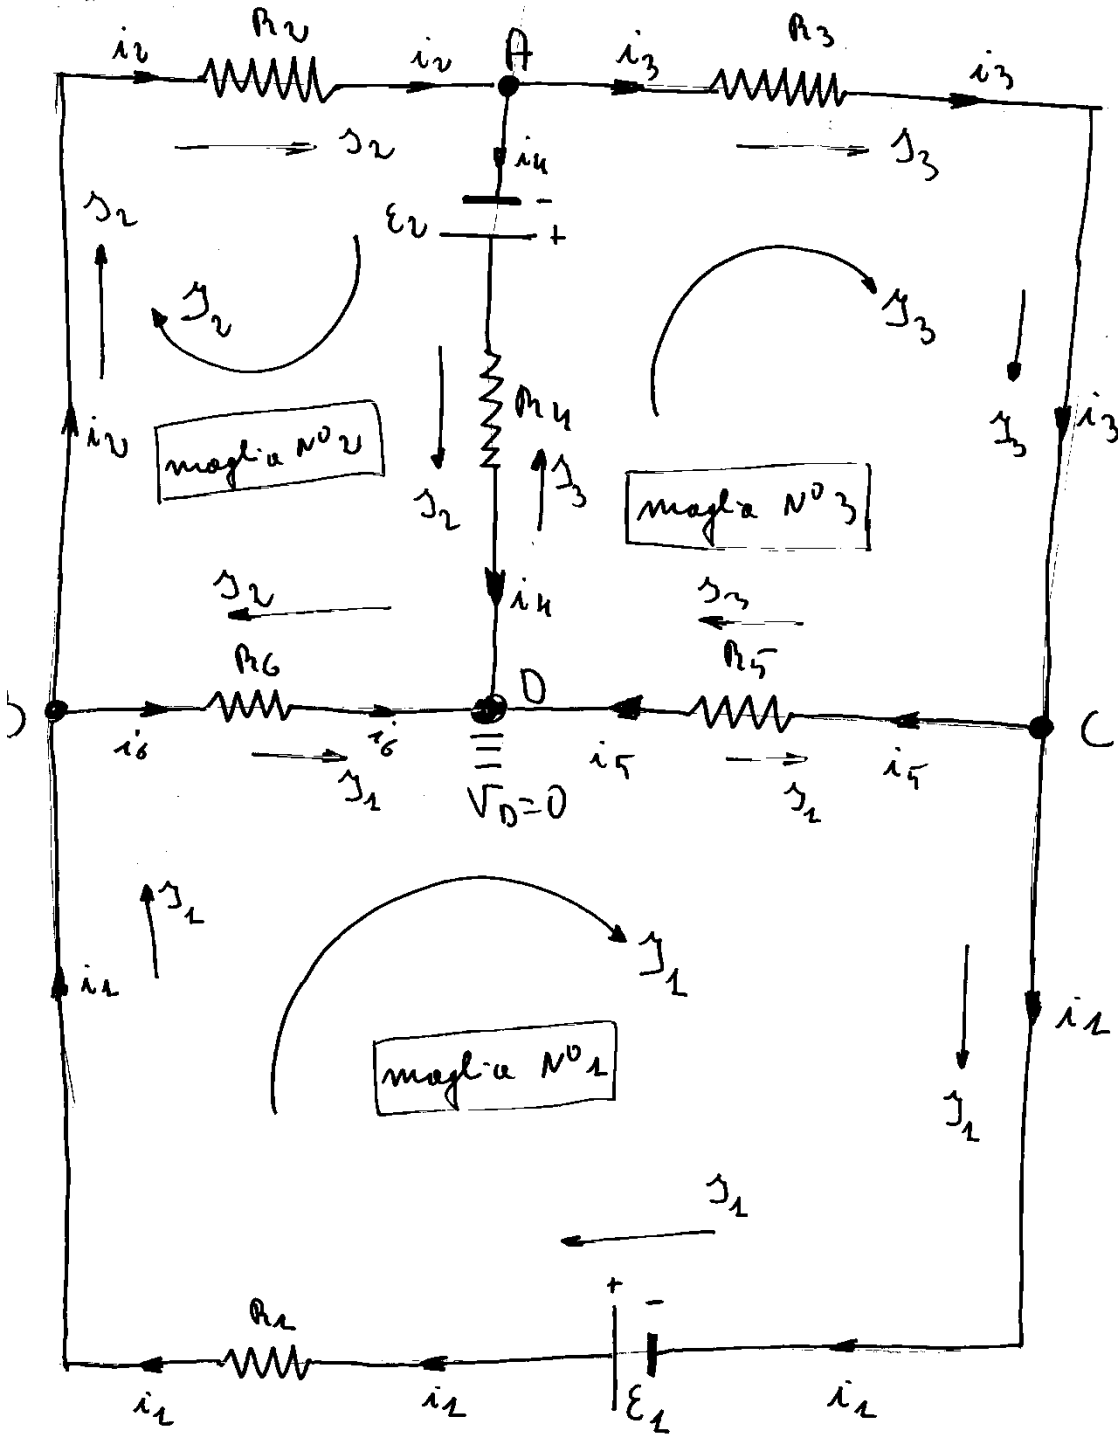 i2 R2 i2 A i3 R3 i3
J2 i4 J3
ε2 - +
J2
J2 J3
R4
i2 maglia N° 2 J3 i3
J2 J3 maglia N° 3
J2 i4 J3
R6 D R5
i6 i6 i5 i5 C
J1 V_D=0 J1
J1
i1 J1 i1
maglia N° 1
J1
J1
R1 + -
i1 i1 ε1 i1